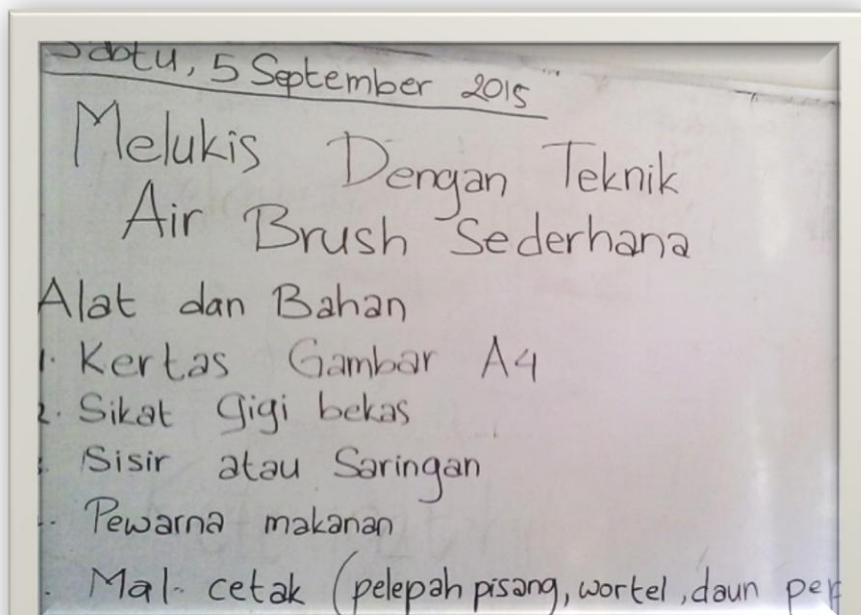 Sabtu, 5 September 2015
Melukis Dengan Teknik
Air Brush Sederhana
Alat dan Bahan
1. Kertas Gambar A4
2. Sikat gigi bekas
Sisir atau Saringan
Pewarna makanan
Mal cetak (pelepah pisang, wortel, daun